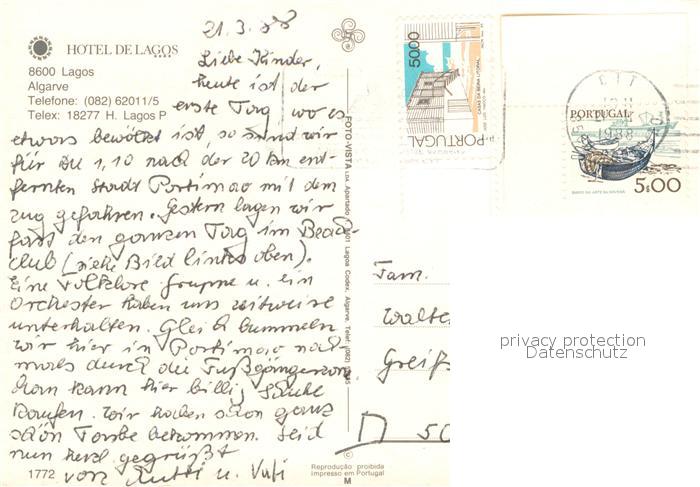 21.3.88
HOTEL DE LAGOS
****
8600 Lagos
Algarve
Telefone: (082) 62011/5
Telex: 18277 H. Lagos P
Liebe Kinder,
heute ist der
erste Tag wo es
etwas bewölkt ist, so sind wir
für DM 1,10 nach der 20 km ent-
fernten Stadt Portimao mit dem
Zug gefahren. Gestern lagen wir
fast den ganzen Tag im Beach-
club (siehe Bild links oben).
Eine Volklore Gruppe u. ein
Orchester haben uns zeitweise
unterhalten. Gleich bummeln
wir hier in Portimao noch-
mals durch die Fußgängerzone.
Man kann hier billig Schuhe
kaufen. Wir haben schon ganz
schön Farbe bekommen. Seid
nun herzl. gegrüßt
von Mutti u. Vati
1772
FOTO-VISTA
Reprodução proibida
Impresso em Portugal
M
5000
CASAS DA BEIRA LITORAL
PORTUGAL
CTT
1988
PORTUGAL
5$00
Fam.
Walte
Greif
D 50
privacy protection
Datenschutz